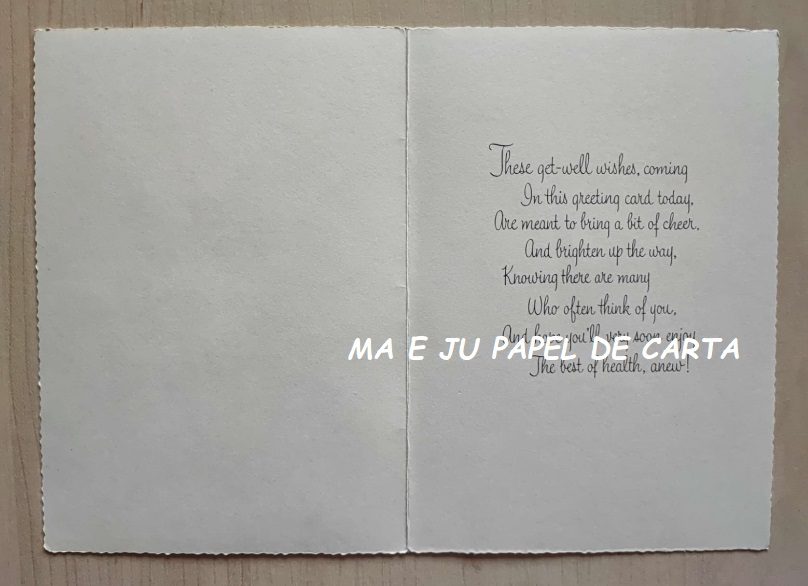 These get-well wishes, coming
In this greeting card today,
Are meant to bring a bit of cheer,
And brighten up the way,
Knowing there are many
Who often think of you,
And hope you'll very soon enjoy
MA E JU PAPEL DE CARTA
The best of health, anew!